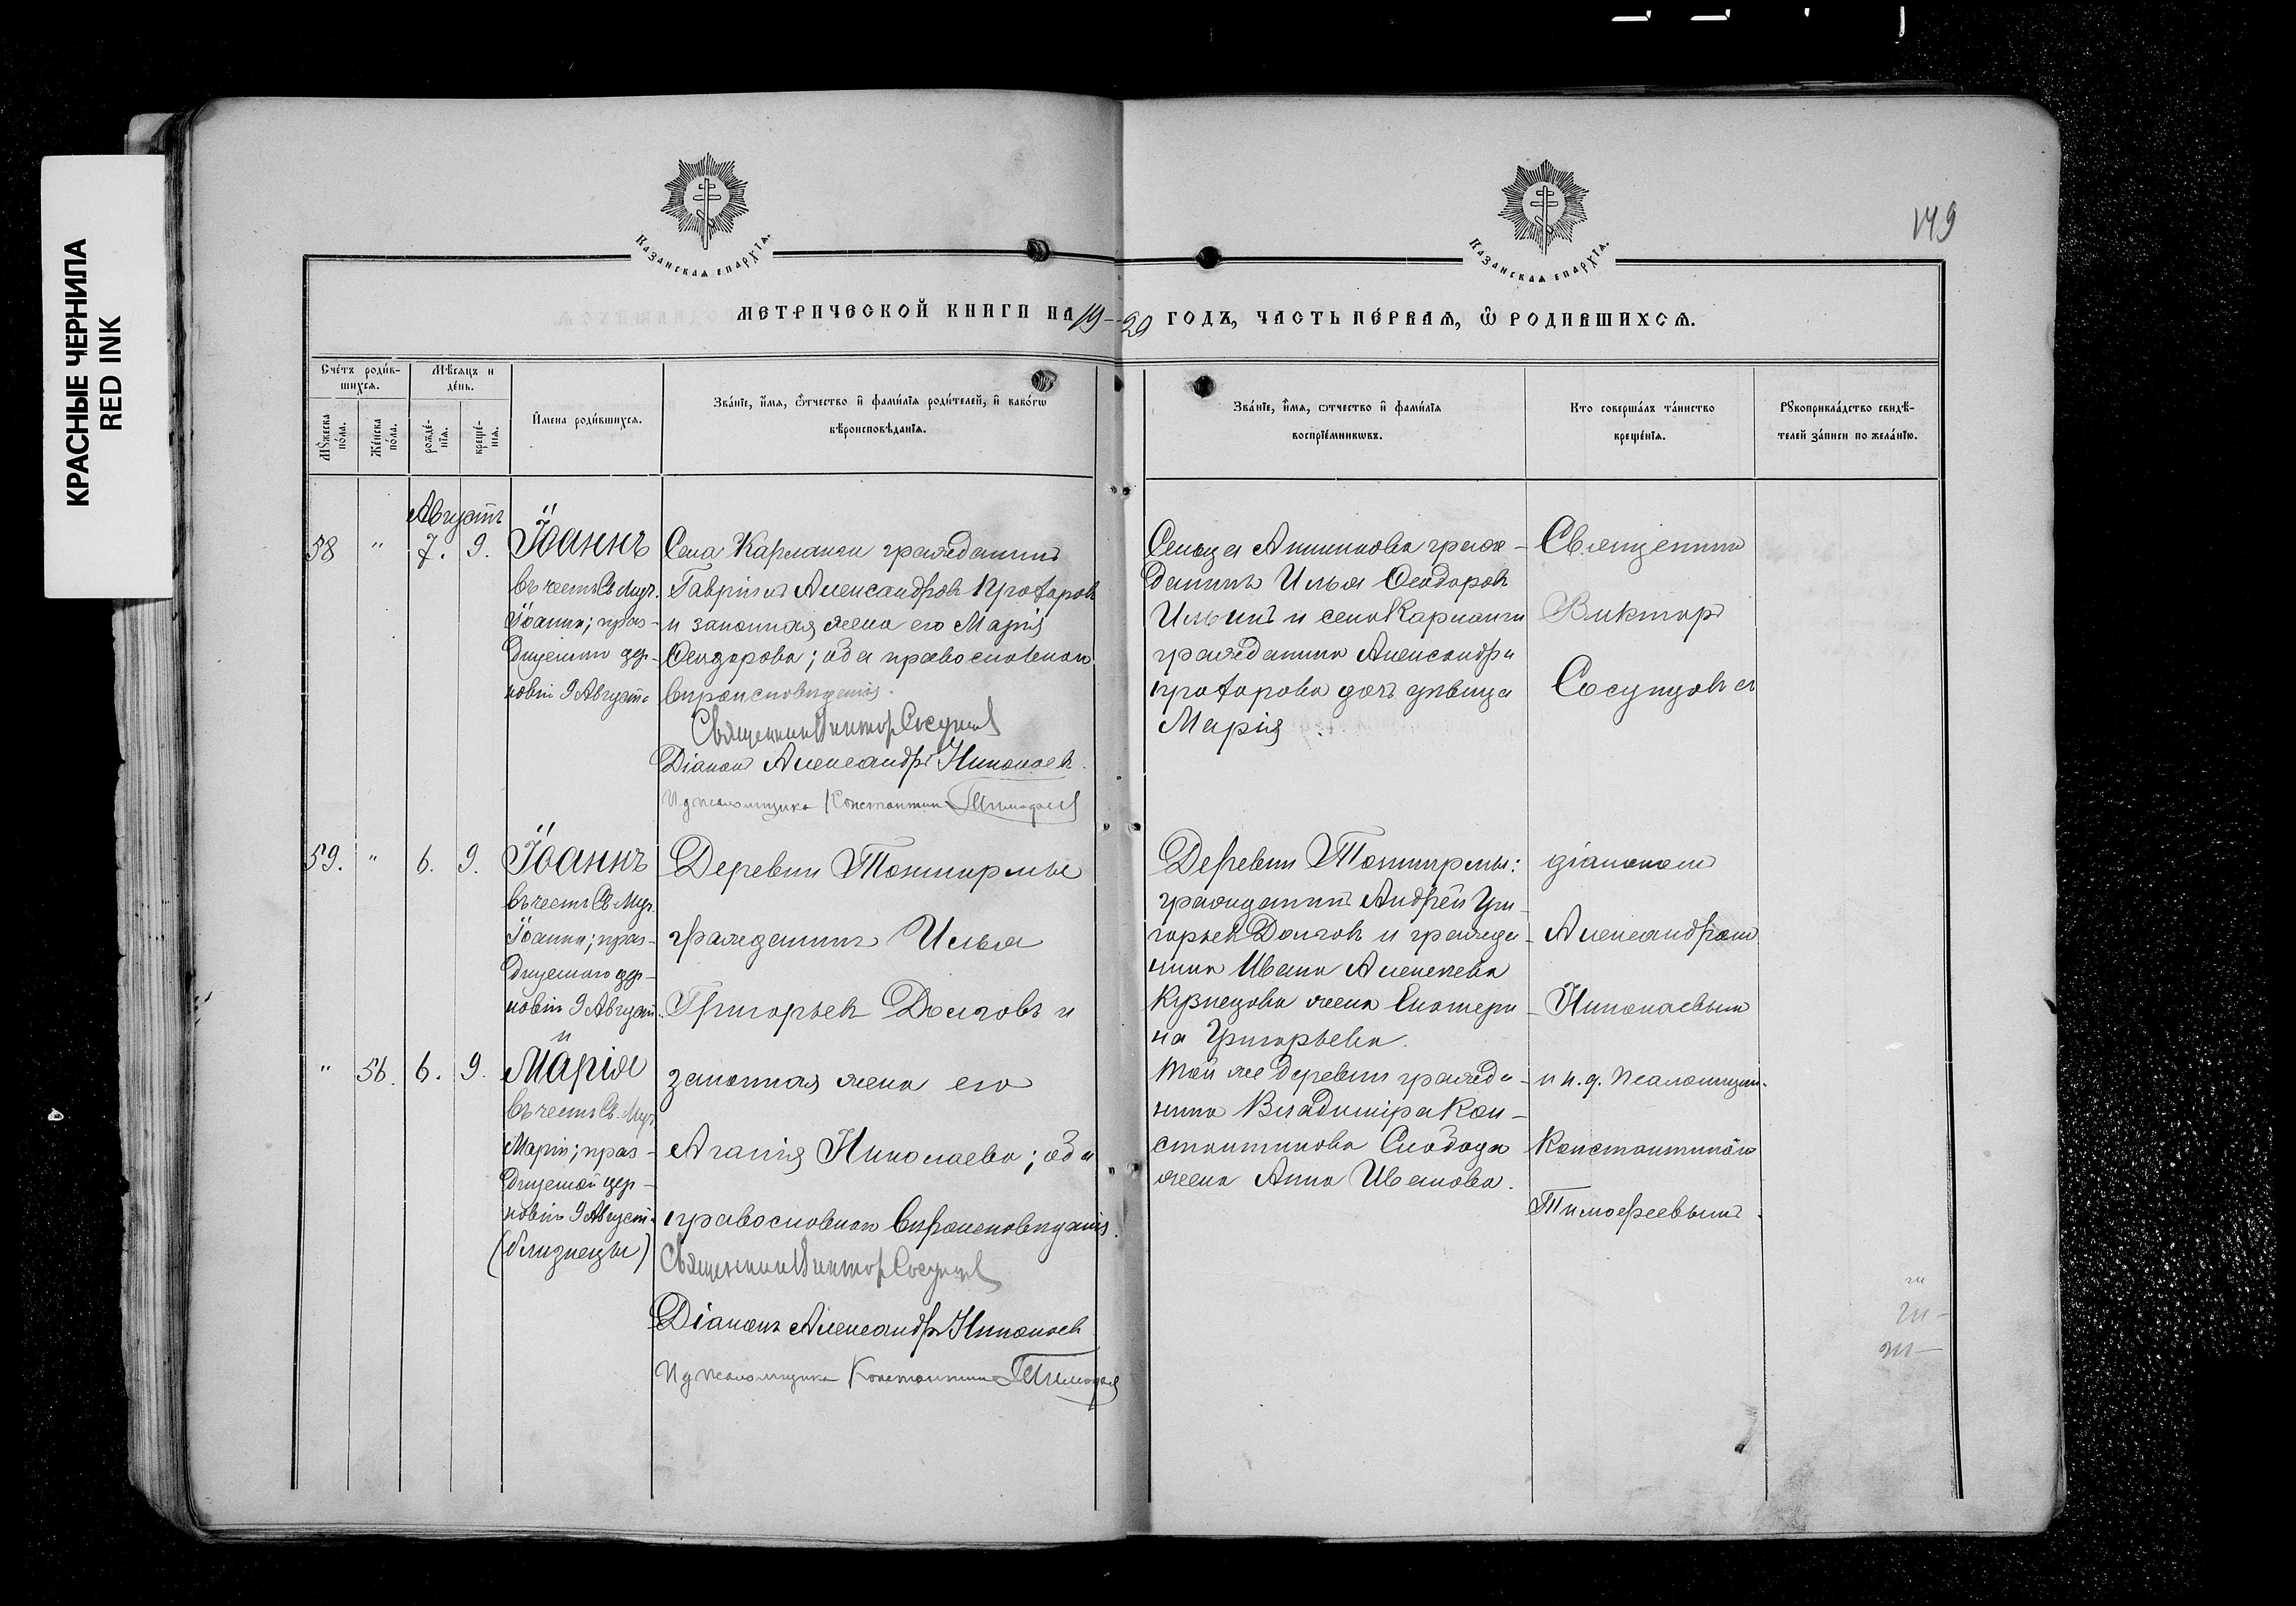 КРАСНЫЕ ЧЕРНИЛА
RED INK
149
Казанская епархїѧ.
Казанская епархїѧ.
МЕТРИЧЕСКОЙ КНИГИ НА 19-20 ГОДЪ, ЧАСТЬ ПЕ́РВАѦ, Ѽ РОДИВШИХСѦ.
Сче́тъ роди́в-
шихсѧ.
Мѣ́сѧцъ и
де́нь.
Мꙋ́жеска
по́ла.
Же́нска
по́ла.
рожде́-
нїѧ.
креще́-
нїѧ.
И҆мена роди́вшихсѧ.
Зва́нїе, и҆́мѧ, ѻ҆́тчество и҆ фами́лїѧ роди́телей, и҆ како́гѡ
вѣроисповѣ́данїѧ.
Зва́нїе, и҆́мѧ, ѻтчество и҆ фами́лїѧ
воспрїе́мниковъ.
Кто соверша́лъ та́инство
креще́нїѧ.
Рꙋкоприкла́дство свидѣ́-
телей за́писи по жела́нїю.
Августъ
58 " 7. 9. Іоаннъ
въ честь Св. Муч.
Іоанна; праз-
днуемаго цер-
ковію 9 Августа
Села Карманги гражданинъ
Гавріилъ Александровъ Проѳоровъ
и законная жена его Марія
Ѳеодорова; оба православнаго
вѣроисповѣданія.
Священникъ Виктор Сосунцов
Діаконъ Александръ Николаевъ.
И д псаломщика Константин Тимофеев
Сельца Апшикова граж-
данинъ Илья Ѳеодоровъ
Ильинъ и села Карманги
гражданина Александра
Проѳорова дочь дѣвица
Марія.
Священникъ
Викторъ
Сосунцовъ
59. " 6. 9. Іоаннъ
въ честь Св. Муч.
Іоанна; праз-
днуемаго цер-
ковію 9 Августа.
и
" 56. 6. 9. Марія
въ честь Св. Муч.
Маріи; праз-
днуемой цер-
ковію 9 Августа
(близнецы)
Деревни
гражданинъ Илья
Григорьевъ Долговъ и
законная жена его
Агапія Николаева; оба
православнаго вѣроисповѣданія.
Священникъ Виктор Сосунцов
Діаконъ Александръ Николаевъ
И д псаломщика Константин Тимофеев
Деревни
гражданинъ Андрей Гри-
горьевъ Долговъ и гражда-
нина Ивана Алексѣева
Кузнецова жена Екатери-
на Григорьева.
Той же деревни гражда-
нина Владиміра Кон-
стантинова Слобода
жена Анна Иванова.
діакономъ
Александромъ
Николаевымъ
и и. д. псаломщик.
Константиномъ
Тимофеевымъ.